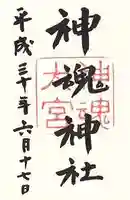 神魂神社
平成三十年六月十七日
神魂
大宮